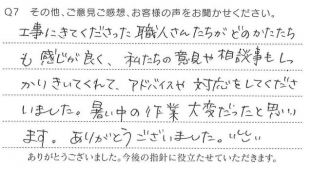 Q7 その他、ご意見ご感想、お客様の声をお聞かせください。
工事にきてくださった職人さんたちがどのかたたち
も感じが良く、私たちの意見や相談事もしっ
かりきいてくれて、アドバイスや対応をしてくださ
いました。暑い中の作業大変だったと思い
ます。ありがとうございました。
ありがとうございました。今後の指針に役立たせていただきます。